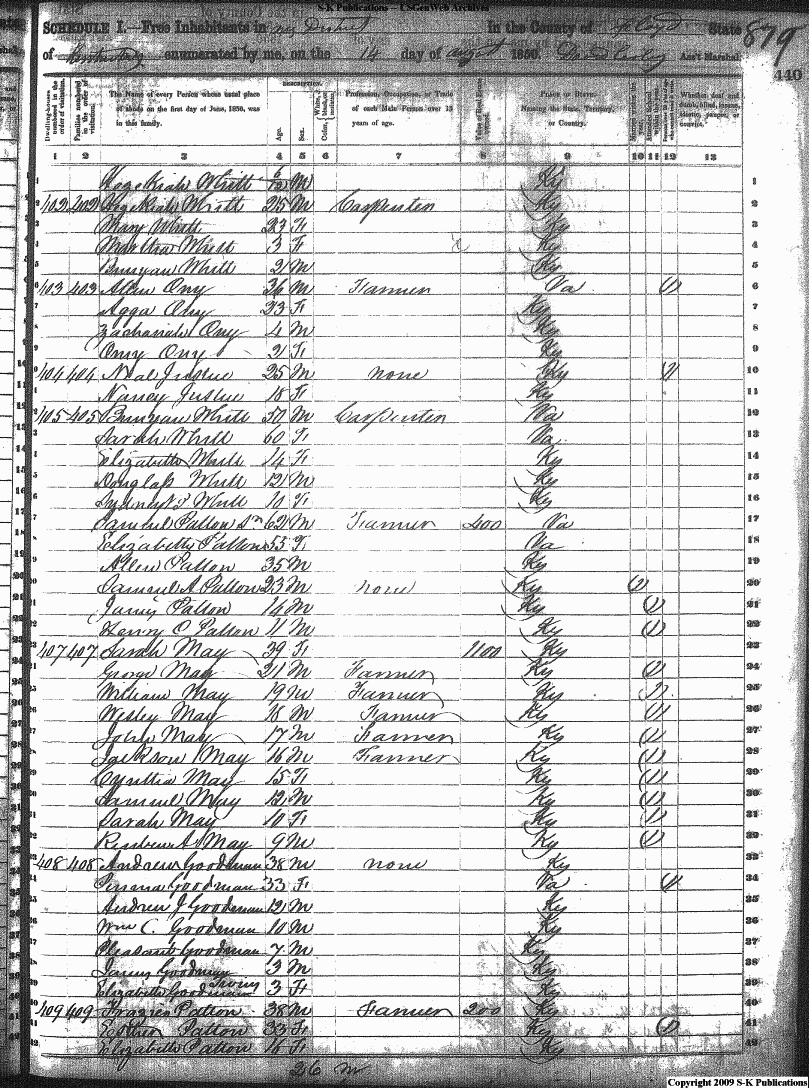 S-K Publications -- USGenWeb Archives
SCHEDULE I.—Free Inhabitants in my District in the County of Floyd State 879
of Kentucky enumerated by me, on the 14 day of august 1850. Ass't Marshal.
440
Dwelling-houses numbered in the order of visitation.
Families numbered in the order of visitation.
The Name of every Person whose usual place of abode on the first day of June, 1850, was in this family.
DESCRIPTION.
Age.
Sex.
Color
Profession, Occupation, or Trade of each Male Person over 15 years of age.
Value of Real Estate owned.
Place of Birth. Naming the State, Territory, or Country.
Whether deaf and dumb, blind, insane, idiotic, pauper, or convict.
1 2 3 4 5 6 7 8 9 10 11 12 13
1 Hezekiah Whitt 6/12 M Ky 1
2 402 402 Hezekiah Whitt 25 M Carpenter Ky 2
3 Mary Whitt 23 F Ky 3
4 Martha Whitt 3 F Ky 4
5 Bunyan Whitt 2 M Ky 5
6 403 403 Allen Ony 36 M Farmer Va 1 6
7 Agga Ony 23 F Ky 7
8 Zachariah Ony 4 M Ky 8
9 Omy Ony 2 F Ky 9
10 404 404 Neal Justice 25 M none Ky 1 10
11 Nancy Justice 18 F Ky 11
12 405 405 Bunyan Whitt 50 M Carpenter Va 12
13 Sarah Whitt 60 F Va 13
14 Elizabeth Whitt 14 F Ky 14
15 Douglass Whitt 12 M Ky 15
16 Whitt 10 F Ky 16
17 Samuel Patton Sr 62 M Farmer 400 Va 17
18 Elizabeth Patton 55 F Va 18
19 Allen Patton 35 M Ky 19
20 Samuel A Patton 23 M none Ky 1 20
21 James Patton 14 M Ky 1 21
22 Henry C Patton 11 M Ky 1 22
23 407 407 Sarah May 39 F 1100 Ky 23
24 George May 21 M Farmer Ky 1 24
25 William May 19 M Farmer Ky 1 25
26 Wesley May 18 M Farmer Ky 1 26
27 John May 17 M Farmer Ky 1 27
28 Jackson May 16 M Farmer Ky 1 28
29 Cynthia May 15 F Ky 1 29
30 Samuel May 12 M Ky 1 30
31 Sarah May 10 F Ky 1 31
32 Reuben A May 9 M Ky 1 32
33 408 408 Andrew Goodman 38 M none Ky 33
34 Goodman 33 F Va 1 34
35 Andrew J Goodman 12 M Ky 35
36 Wm C. Goodman 10 M Ky 36
37 Pleasant Goodman 7 M Ky 37
38 James Goodman 3 M Ky 38
39 Elizabeth Goodman 3 F Ky 39
40 409 409 Frazier Patton 38 M Farmer 200 Ky 40
41 Patton 33 F Ky 1 41
42 Elizabeth Patton 16 F Ky 42
26 M
Copyright 2009 S-K Publications